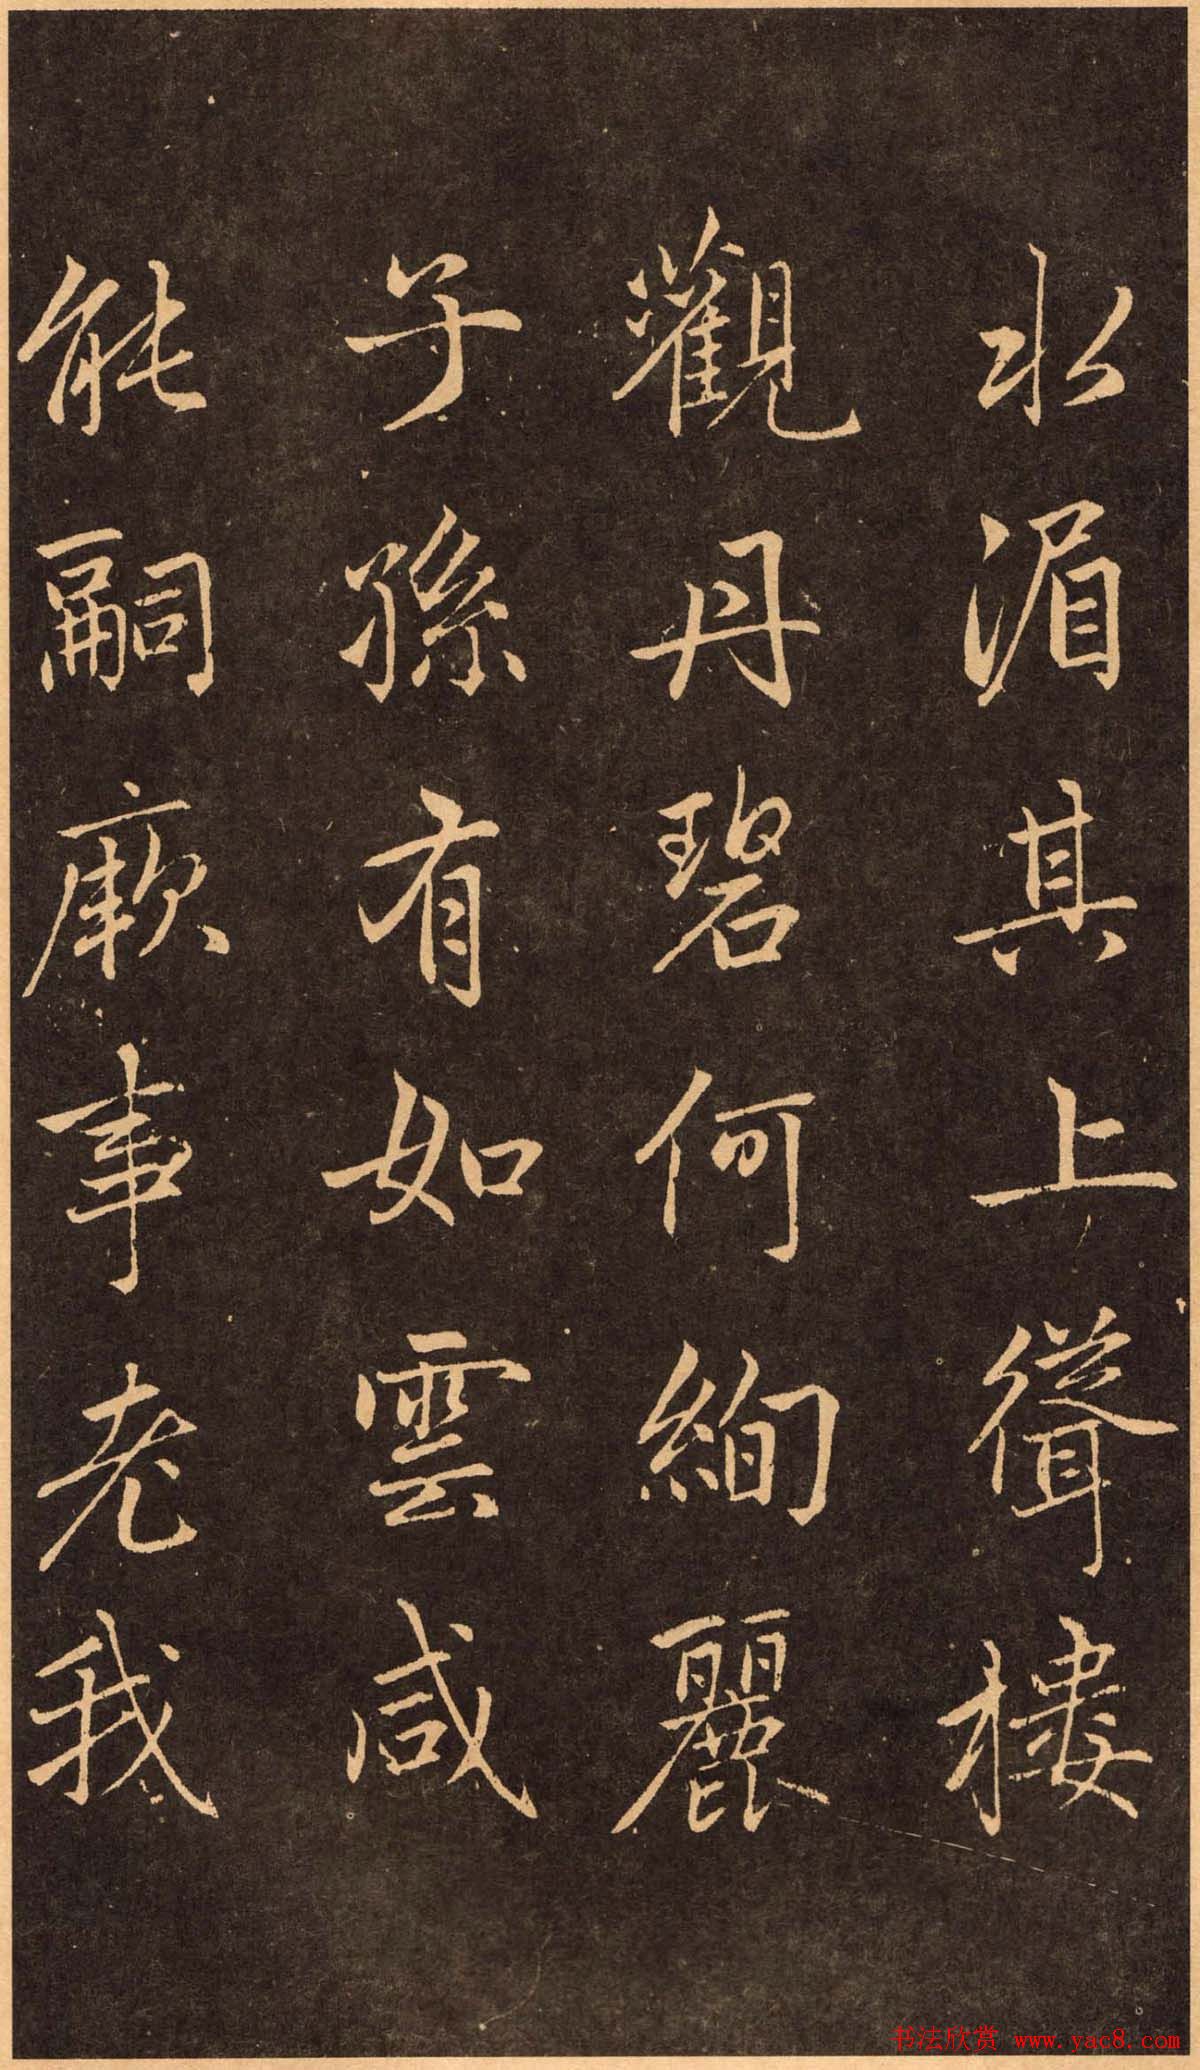 水湄其上聳樓
觀丹碧何絢麗
子孫有如雲咸
能嗣厥事老我
书法欣赏 www.yac8.com